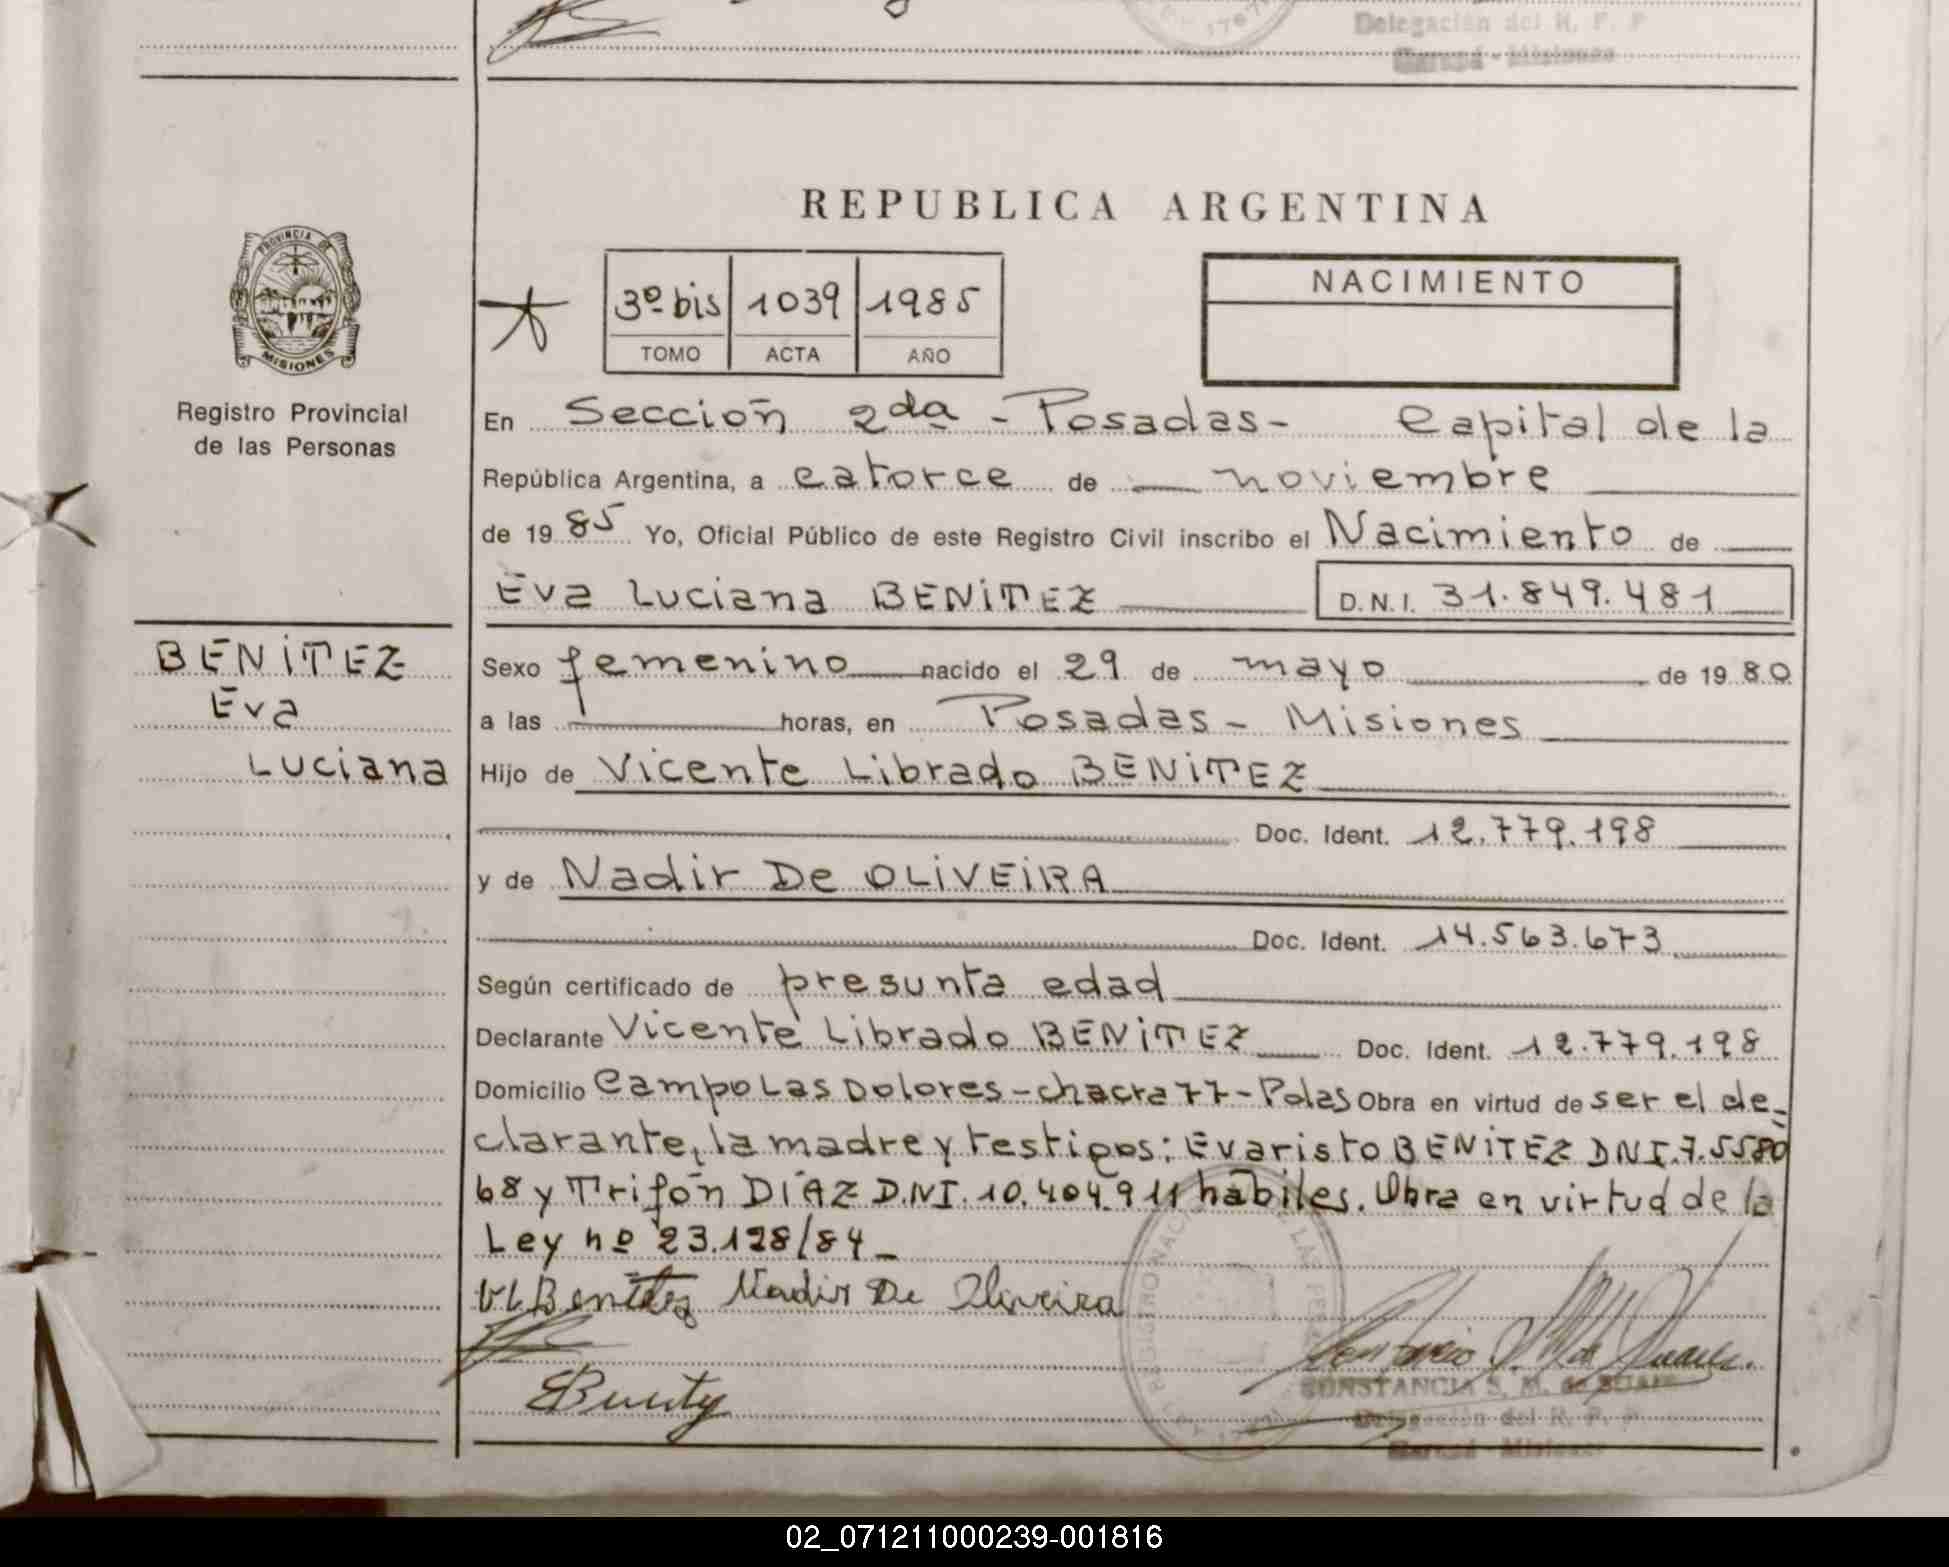 Delegación del R. P. P
Garupá - Misiones
REPUBLICA ARGENTINA
PROVINCIA DE
MISIONES
Registro Provincial
de las Personas
3º bis 1039 1985
TOMO ACTA AÑO
NACIMIENTO
En Sección 2da - Posadas - Capital de la
República Argentina, a catorce de noviembre
de 1985 Yo, Oficial Público de este Registro Civil inscribo el Nacimiento de
Eva Luciana BENITEZ D.N.I. 31.849.481
BENITEZ
Eva
Luciana
Sexo femenino nacido el 29 de mayo de 1980
a las horas, en Posadas - Misiones
Hijo de Vicente Librado BENITEZ
Doc. Ident. 12.779.198
y de Nadir De OLIVEIRA
Doc. Ident. 14.563.673
Según certificado de presunta edad
Declarante Vicente Librado BENITEZ Doc. Ident. 12.779.198
Domicilio Campo Las Dolores - chacra 77 - Pdas Obra en virtud de ser el de-
clarante, la madre y testigos: Evaristo BENITEZ DNI. 7.5580
68 y Trifón DÍAZ D.NI. 10.404.911 hábiles. Obra en virtud de la
Ley nº 23.128/84 -
VLBenitez Nadir De Oliveira
CONSTANCIA S. M. de SUAREZ
Delegación del R. P. P
Garupá - Misiones
02_071211000239-001816